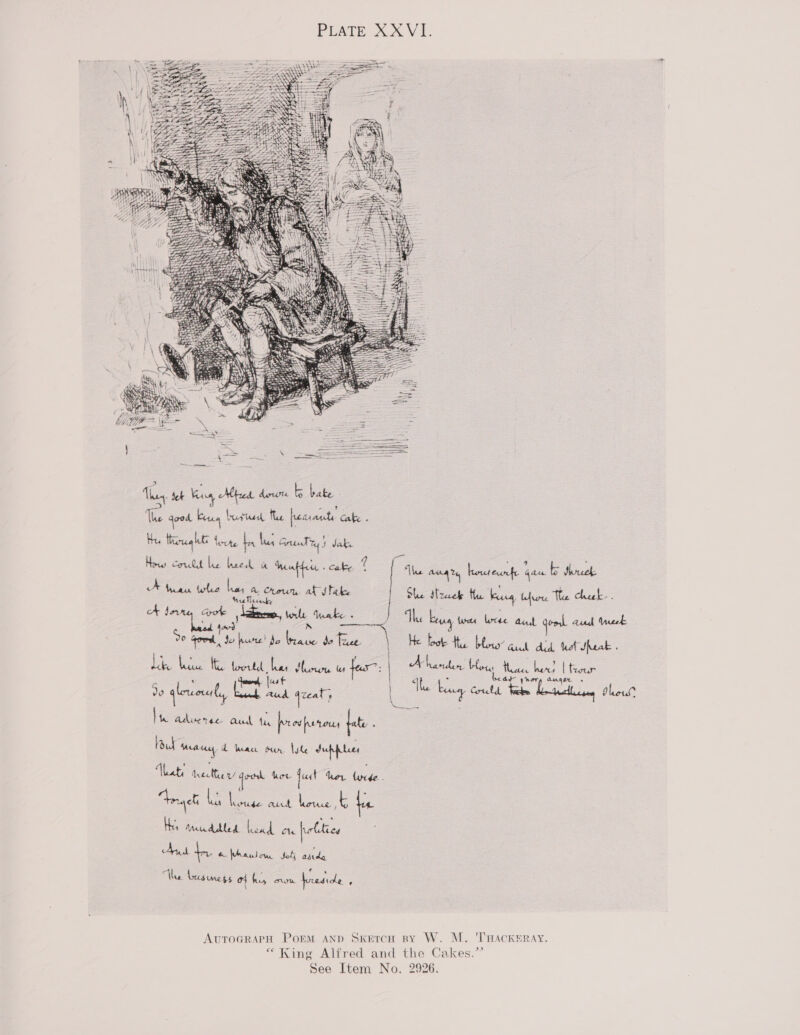 PLATE XXVI.
They set King Alfred down to bake
The good King burned the peasants cake.
His thoughts were for his Country's sake
How could he heed a muffin-cake?
A man who has a crown at stake
A sorry Cook will make.
So good, so pure! so brave so true
Like him the world has shown us few:
just
So gloriously and great,
In adverse and in prosperous fate.
But many a man our Isle supplies
Thats neither good nor just nor wise.
Forgets his house and home, to fix
His muddled head on politics
And for a phantom sets aside
The business of his own fireside.
The angry housewife gan to shriek
She struck the King upon the cheek.
The King was wise and good and meek
He took the blow and did not speak.
A harder blow than hers I trow
bear more anger
The King could show?
AUTOGRAPH POEM AND SKETCH BY W. M. THACKERAY.
“King Alfred and the Cakes.”
See Item No. 2926.